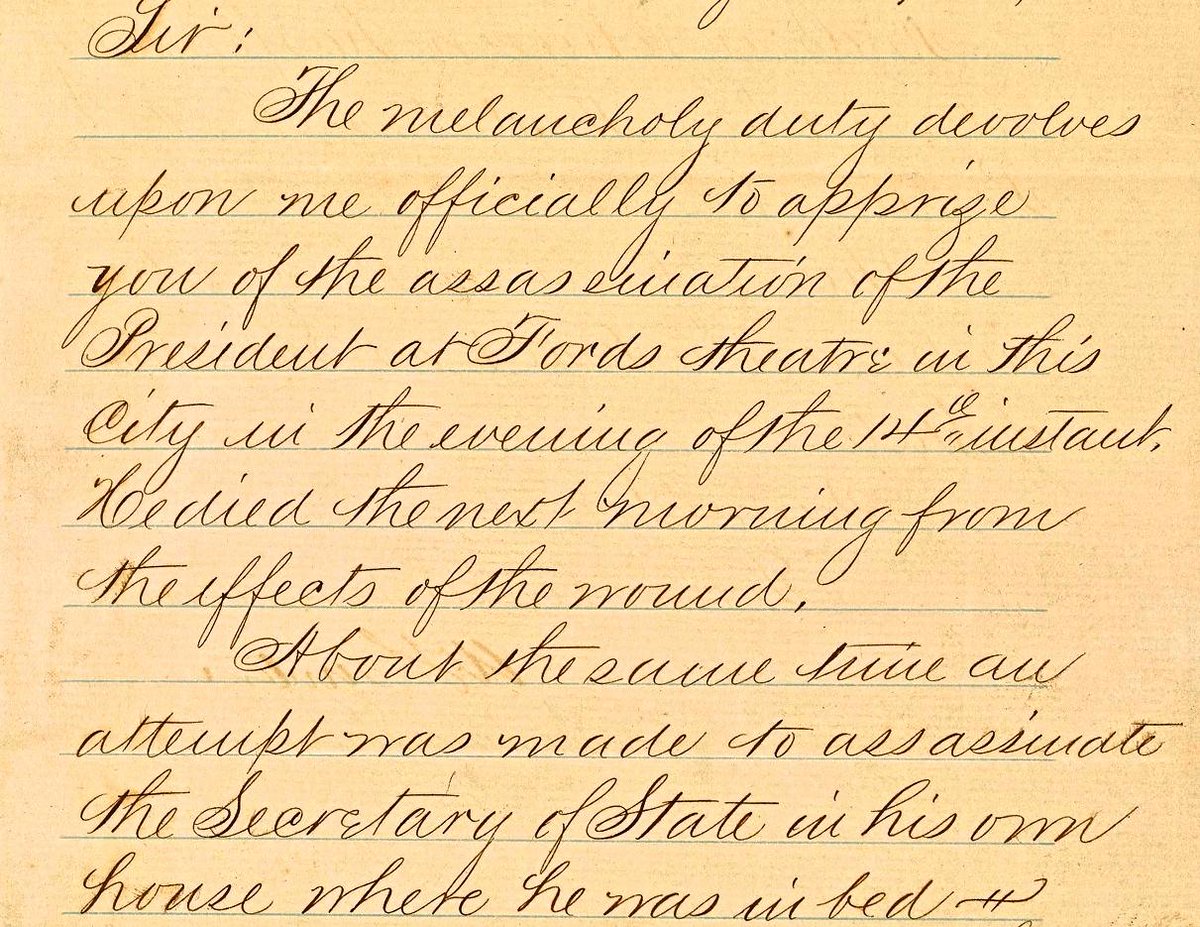 Sir:
The melancholy duty devolves
upon me officially to apprize
you of the assassination of the
President at Fords theatre in this
City in the evening of the 14th instant.
He died the next morning from
the effects of the wound.
About the same time an
attempt was made to assassinate
the Secretary of State in his own
house where he was in bed